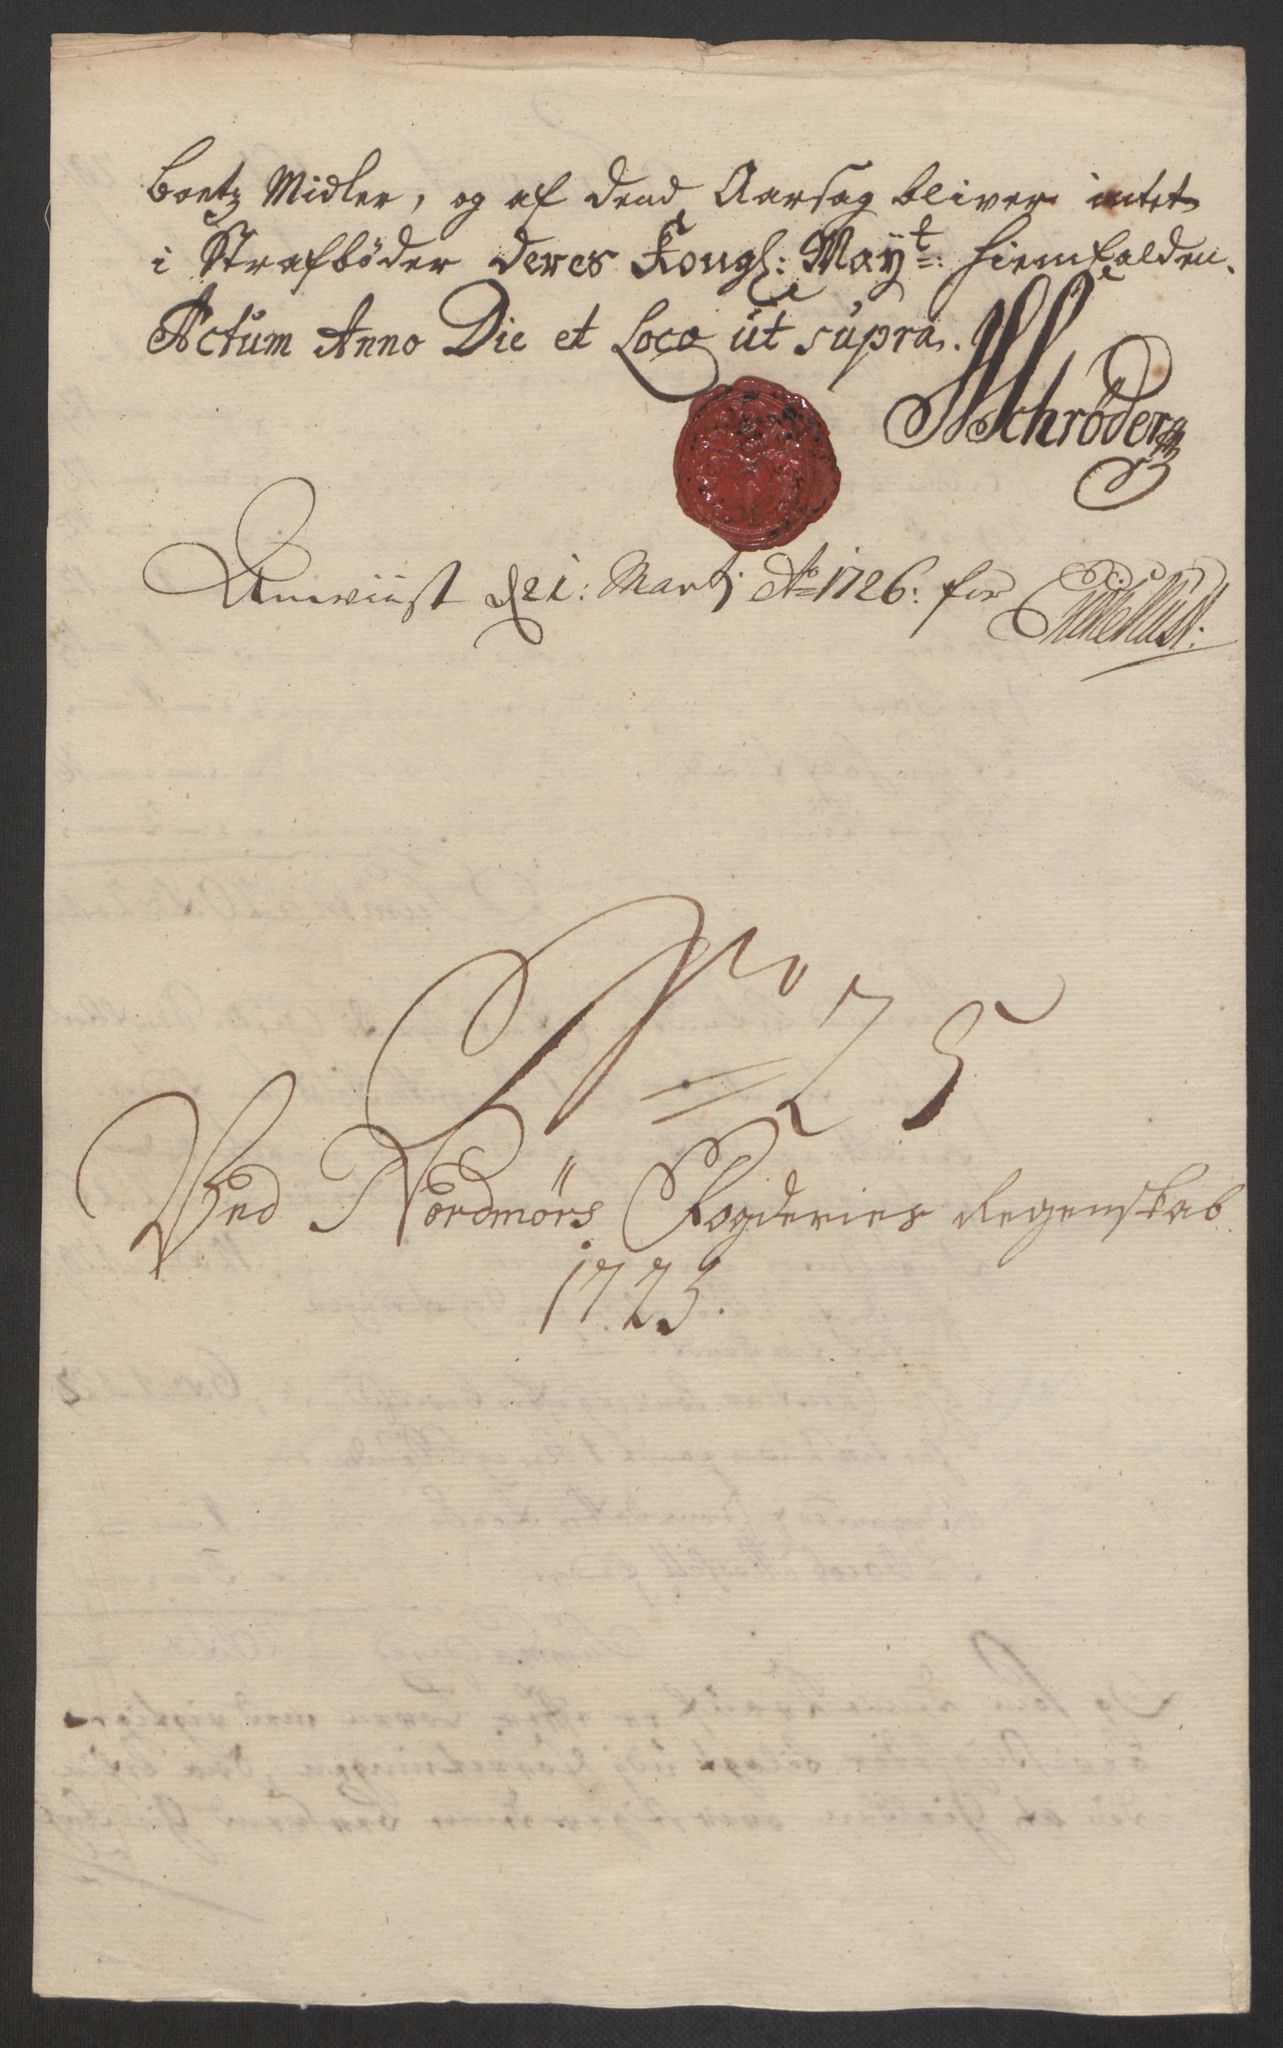 boetz Midler, og af dend Aarsag bliver intet
i Strafbøder deres Kongl: Mayt: hiemfalden.
Actum Anno Die et Loco ut supra.
Schrøder
d 21: Martj Ao 1726: for
No 25
Ved Nordmørs Fogderies Regenskab
1725.